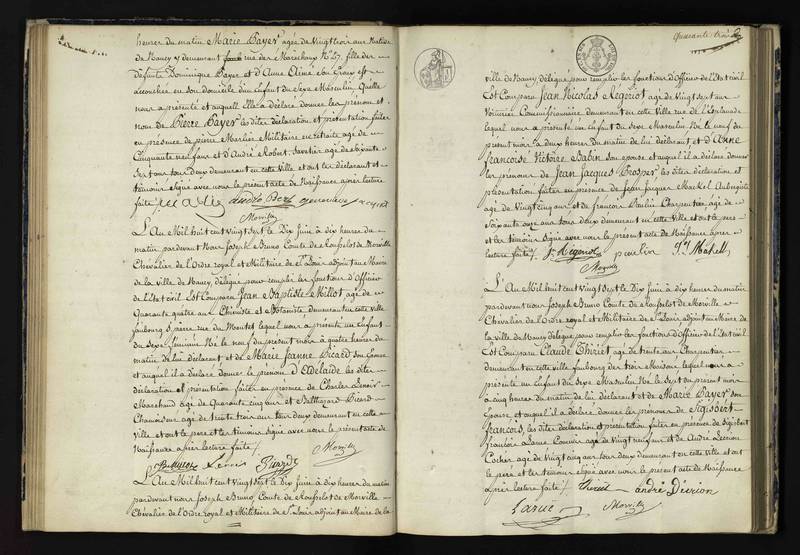 heures du matin Marie Payer agée de Vingt trois ans Native
de Nancy y demeurant rue des Maréchaux No 27, fille de
défunt Dominique Payer et d'Anne Aimé Son Epoux est
accouchée en son domicile d'un Enfant du Sexe Masculin, qu'elle
nous a présenté et auquel elle a déclaré donner le prénom et
nom de Pierre Payer les dites déclaration et présentation faites
en présence de pierre Marlier Militaire en retraite agé de
Cinquante neuf ans et d'André Robert Savetier agé de soixante
Sept ans tous deux demeurant en cette Ville et ont les déclarant et
témoins Signé avec nous le présent acte de Naissance après lecture
faite /.
Morville
L'An Mil huit cent Vingt sept le Dix Juin à dix heures du
matin pardevant Nous Joseph Bruno Comte de Rousselot de Morville
Chevalier de l'Ordre royal et Militaire de St Louis adjoint au Maire
de la Ville de Nancy délégué pour remplir les fonctions d'Officier
de l'Etat civil Est Comparu Jean Baptiste Millot agé de
Quarante quatre ans Chimiste et Botaniste demeurant en cette ville
faubourg St pierre rue du Montet lequel nous a présenté un Enfant
du Sexe féminin Né le neuf du présent mois à quatre heures du
matin de lui déclarant et de Marie Jeanne Picard Son Epouse
et auquel il a déclaré donner le prénom D'Adélaïde les dites
déclaration et présentation faites en présence de Charles Lenoir
Marchand agé de Quarante cinq ans et Balthazard Picard
Chamoiseur agé de trente trois ans tous deux demeurant en cette
Ville et ont le père et les témoins Signé avec nous le présent acte de
Naissance après lecture faite /.
Morville
Picard
L'An Mil huit cent Vingt sept le Dix Juin à dix heures du matin
pardevant Nous Joseph Bruno Comte de Rousselot de Morville
Chevalier de l'Ordre royal et Militaire de St Louis adjoint au Maire de la
quarante trois
ville de Nancy délégué pour remplir les fonctions d'Officier de l'Etat civil
Est Comparu Jean Nicolas Regeriot agé de Vingt sept ans
Voiturier Commissionnaire demeurant en cette Ville rue de l'Esplanade
lequel nous a présenté un Enfant du Sexe Masculin Né le neuf du
présent mois à deux heures du matin de lui déclarant et d'Anne
françoise Victoire Babin Son épouse et auquel il a déclaré donner
les prénoms de Jean Jacques Prosper les dites déclaration et
présentation faites en présence de Jean Jacques Markel Aubergiste
agé de Vingt cinq ans et de francois Paulin Charpentier agé de
Soixante onze ans tous deux demeurant en cette ville et ont le père
et les témoins Signé avec nous le présent acte de Naissance après
lecture faite /. paulin
Morville
L'An Mil huit cent Vingt sept le Dix Juin à dix heures du matin
pardevant nous Joseph Bruno Comte de Rousselot de Morville
Chevalier de l'Ordre royal et Militaire de St Louis adjoint au Maire de
la Ville de Nancy délégué pour remplir les fonctions d'Officier de l'Etat civil
Est Comparu Claude Thiriet agé de trente ans Charpentier
demeurant en cette ville faubourg des trois Maisons lequel nous a
présenté un Enfant du Sexe Masculin Né le Sept du présent mois
à cinq heures du matin de lui déclarant et de Marie Payer Son
Epouse, et auquel il a déclaré donner les prénoms de Sigisbert
francois, les dites déclaration et présentation faites en présence de Sigisbert
francois Larue Couvreur agé de Vingt neuf ans et de André
Cocher agé de Vingt cinq ans tous deux demeurant en cette ville et ont
le père et les témoins Signé avec nous le présent acte de Naissance
après lecture faite /. thiriet andré
Larue Morville